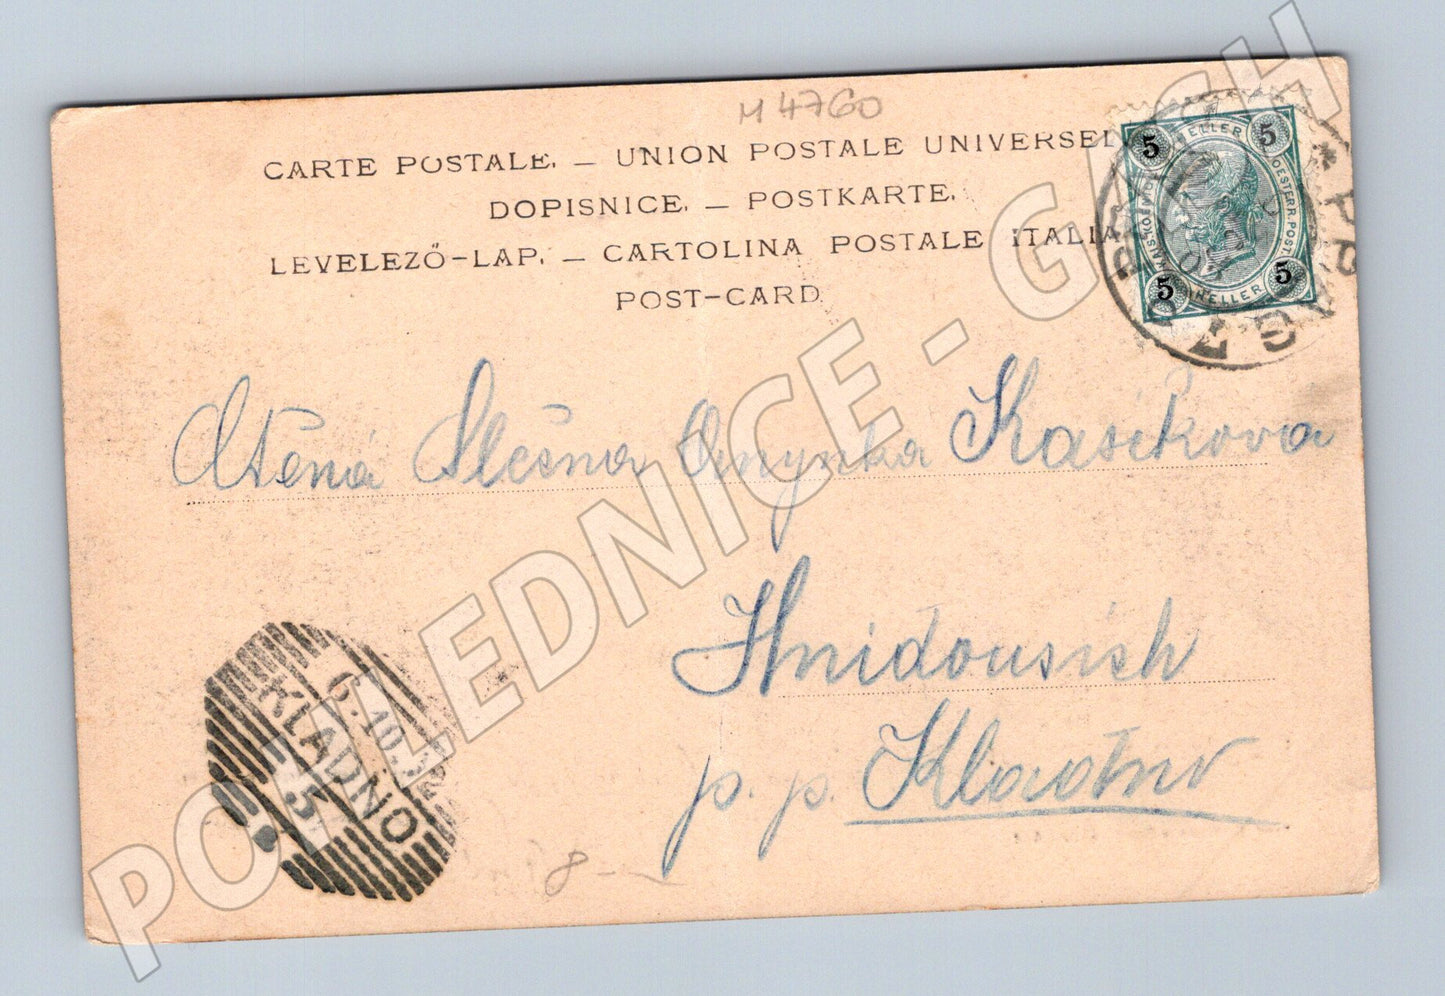 M 4760
CARTE POSTALE. — UNION POSTALE UNIVERSEL
DOPISNICE. — POSTKARTE.
LEVELEZŐ-LAP. — CARTOLINA POSTALE ITALIA
POST-CARD
5 HELLER 5
KAIS. KOEN OESTERR. POST
5 HELLER 5
PRAG
Ctěná Slečna Anynka Kasikova
Hnidousich
p. p. Kladno
KLADNO
6.10.02
8 —
POHLEDNICE - GASCH